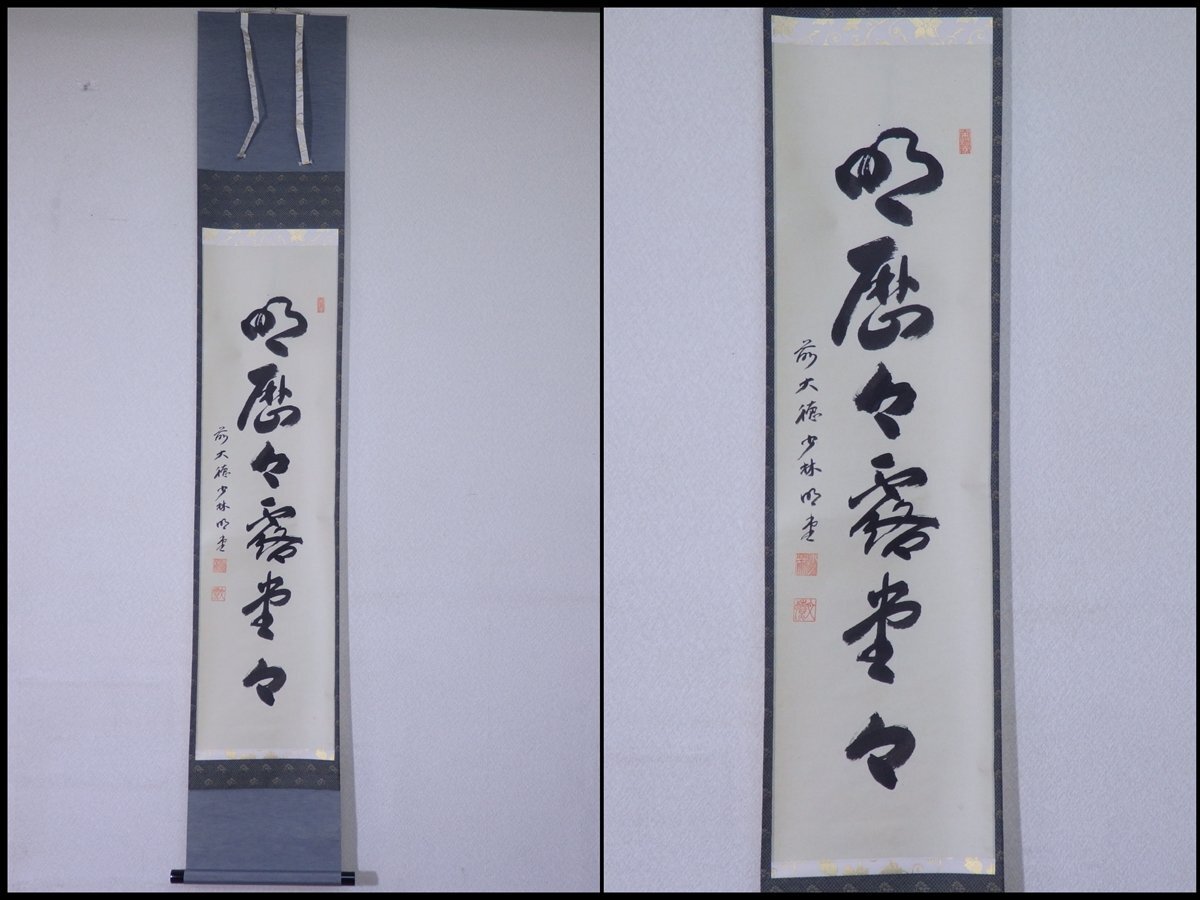 明歴々露堂々
前大徳少林明堂
明歴々露堂々
前大徳少林明堂